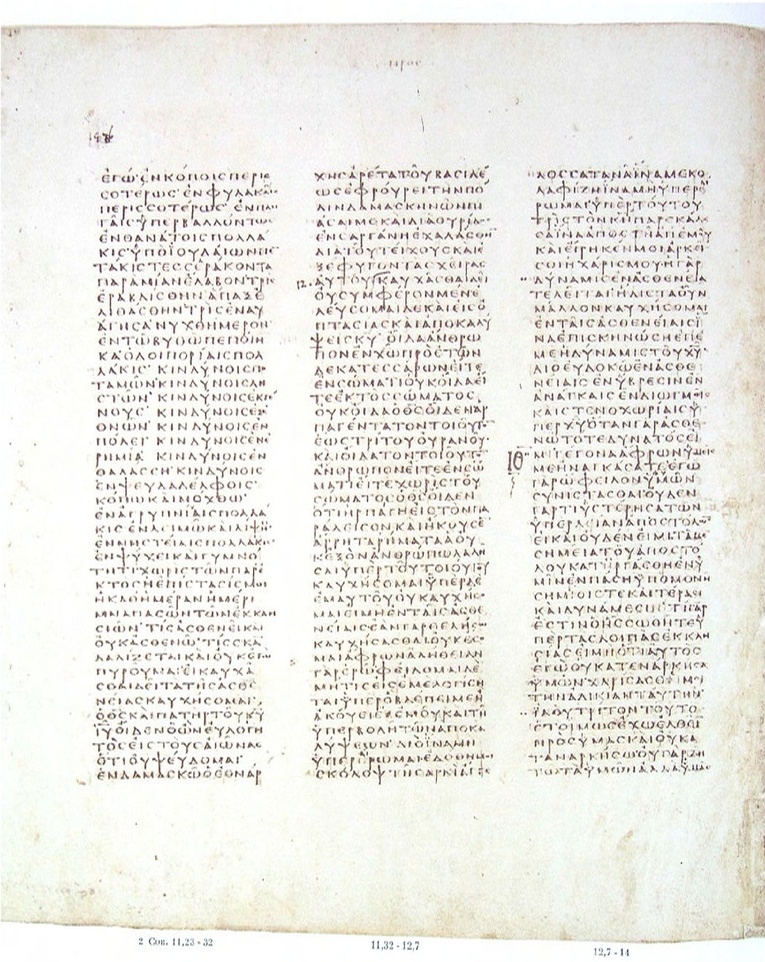 ΕΓΩΕΝΚΟΠΟΙϹΠΕΡΙϹ
ϹΟΤΕΡΩϹΕΝΦΥΛΑΚΑΙϹ
ΠΕΡΙϹϹΟΤΕΡΩϹΕΝΠΛΗ
ΓΑΙϹΥΠΕΡΒΑΛΛΟΝΤΩϹ
ΕΝΘΑΝΑΤΟΙϹΠΟΛΛΑ
ΚΙϹΥΠΟΙΟΥΔΑΙΩΝΠΕΝ
ΤΑΚΙϹΤΕϹϹΕΡΑΚΟΝΤΑ
ΠΑΡΑΜΙΑΝΕΛΑΒΟΝΤΡΙϹ
ΕΡΑΒΔΙϹΘΗΝΑΠΑΞΕ
ΛΙΘΑϹΘΗΝΤΡΙϹΕΝΑΥ
ΑΓΗϹΑΝΥΧΘΗΜΕΡΟΝ
ΕΝΤΩΒΥΘΩΠΕΠΟΙΗ
ΚΑΟΔΟΙΠΟΡΙΑΙϹΠΟΛ
ΛΑΚΙϹΚΙΝΔΥΝΟΙϹΠΟ
ΤΑΜΩΝΚΙΝΔΥΝΟΙϹΛΗ
ϹΤΩΝΚΙΝΔΥΝΟΙϹΕΚΓΕ
ΝΟΥϹΚΙΝΔΥΝΟΙϹΕΞΕ
ΘΝΩΝΚΙΝΔΥΝΟΙϹΕΝ
ΠΟΛΕΙΚΙΝΔΥΝΟΙϹΕΝΕ
ΡΗΜΙΑΚΙΝΔΥΝΟΙϹΕΝ
ΘΑΛΑϹϹΗΚΙΝΔΥΝΟΙϹ
ΕΝΨΕΥΔΑΔΕΛΦΟΙϹ
ΚΟΠΩΚΑΙΜΟΧΘΩ
ΕΝΑΓΡΥΠΝΙΑΙϹΠΟΛΛΑ
ΚΙϹΕΝΛΕΙΜΩΚΑΙΔΙΨΕΙ
ΕΝΝΗϹΤΕΙΑΙϹΠΟΛΛΑΚΙϹ
ΕΝΨΥΧΕΙΚΑΙΓΥΜΝΟ
ΤΗΤΙΧΩΡΙϹΤΩΝΠΑΡΕ
ΚΤΟϹΗΕΠΙϹΤΑϹΙϹΜΟΙ
ΗΚΑΘΗΜΕΡΑΝΗΜΕΡΙ
ΜΝΑΠΑϹΩΝΤΩΝΕΚΚΛΗ
ϹΙΩΝΤΙϹΑϹΘΕΝΕΙΚΑΙ
ΟΥΚΑϹΘΕΝΩΤΙϹϹΚΑΝ
ΔΑΛΙΖΕΤΑΙΚΑΙΟΥΚΕΓΩ
ΠΥΡΟΥΜΑΙΕΙΚΑΥΧΑ
ϹΘΑΙΔΕΙΤΑΤΗϹΑϹΘΕ
ΝΕΙΑϹΚΑΥΧΗϹΟΜΑΙ
ΟΘϹΚΑΙΠΑΤΗΡΤΟΥΚΥ
ΙΥΟΙΔΕΝΟΩΝΕΥΛΟΓΗ
ΤΟϹΕΙϹΤΟΥϹΑΙΩΝΑϹ
ΟΤΙΟΥΨΕΥΔΟΜΑΙ
ΕΝΔΑΜΑϹΚΩΟΕΘΝΑΡ
ΧΗϹΑΡΕΤΑΤΟΥΒΑϹΙΛΕ
ΩϹΕΦΡΟΥΡΕΙΤΗΝΠΟ
ΛΙΝΔΑΜΑϹΚΗΝΩΝΠΙ
ΑϹΑΙΜΕΚΑΙΔΙΑΘΥΡΙΔΟϹ
ΕΝϹΑΡΓΑΝΗΕΧΑΛΑϹΘΗΝ
ΔΙΑΤΟΥΤΕΙΧΟΥϹΚΑΙΕ
ΞΕΦΥΓΟΝΤΑϹΧΕΙΡΑϹ
12. ΑΥΤΟΥΚΑΥΧΑϹΘΑΙΔΕΙ
ΟΥϹΥΜΦΕΡΟΝΜΕΝΕ
ΛΕΥϹΟΜΑΙΔΕΚΑΙΕΙϹΟ
ΠΤΑϹΙΑϹΚΑΙΑΠΟΚΑΛΥ
ΨΕΙϹΚΥΟΙΔΑΑΝΘΡΩ
ΠΟΝΕΝΧΩΠΡΟΕΤΩΝ
ΔΕΚΑΤΕϹϹΑΡΩΝΕΙΤΕ
ΕΝϹΩΜΑΤΙΟΥΚΟΙΔΑΕΙ
ΤΕΕΚΤΟϹΤΟΥϹΩΜΑΤΟϹ
ΟΥΚΟΙΔΑΟΘϹΟΙΔΕΝΑΡ
ΠΑΓΕΝΤΑΤΟΝΤΟΙΟΥΤΟΝ
ΕΩϹΤΡΙΤΟΥΟΥΡΑΝΟΥ
ΚΑΙΟΙΔΑΤΟΝΤΟΙΟΥΤΟΝ
ΑΝΘΡΩΠΟΝΕΙΤΕΕΝϹΩ
ΜΑΤΙΕΙΤΕΧΩΡΙϹΤΟΥ
ϹΩΜΑΤΟϹΟΘϹΟΙΔΕΝ
ΟΤΙΗΡΠΑΓΗΕΙϹΤΟΝΠΑ
ΡΑΔΕΙϹΟΝΚΑΙΗΚΟΥϹΕ
ΑΡΡΗΤΑΡΗΜΑΤΑΑΟΥ
ΚΕΞΟΝΑΝΘΡΩΠΩΛΑΛΗ
ϹΑΙΥΠΕΡΤΟΥΤΟΙΟΥΤΟΥ
ΚΑΥΧΗϹΟΜΑΙΥΠΕΡΔΕ
ΕΜΑΥΤΟΥΟΥΚΑΥΧΗϹΟ
ΜΑΙΕΙΜΗΕΝΤΑΙϹΑϹΘΕ
ΝΕΙΑΙϹΕΑΝΓΑΡΘΕΛΗϹΩ
ΚΑΥΧΗϹΑϹΘΑΙΟΥΚΕϹΟ
ΜΑΙΑΦΡΩΝΑΛΗΘΕΙΑΝ
ΓΑΡΕΡΩΦΕΙΔΟΜΑΙΔΕ
ΜΗΤΙϹΕΙϹΕΜΕΛΟΓΙϹΗ
ΤΑΙΥΠΕΡΟΒΛΕΠΕΙΜΕΗ
ΑΚΟΥΕΙΕΞΕΜΟΥΚΑΙΤΗ
ΥΠΕΡΒΟΛΗΤΩΝΑΠΟΚΑ
ΛΥΨΕΩΝΔΙΟΙΝΑΜΗ
ΥΠΕΡΑΙΡΩΜΑΙΕΔΟΘΗΜΟΙ
ϹΚΟΛΟΨΤΗϹΑΡΚΙΑΓΓΕ
ΛΟϹϹΑΤΑΝΑΙΝΑΜΕΚΟ
ΛΑΦΙΖΗΙΝΑΜΗΥΠΕΡΑΙ
ΡΩΜΑΙΥΠΕΡΤΟΥΤΟΥ
ΤΡΙϹΤΟΝΚΝΠΑΡΕΚΑΛΕ
ϹΑΙΝΑΑΠΟϹΤΗΑΠΕΜΟΥ
ΚΑΙΕΙΡΗΚΕΝΜΟΙΑΡΚΕΙ
ϹΟΙΗΧΑΡΙϹΜΟΥΗΓΑΡ
ΔΥΝΑΜΙϹΕΝΑϹΘΕΝΕΙΑ
ΤΕΛΕΙΤΑΙΗΔΙϹΤΑΟΥΝ
ΜΑΛΛΟΝΚΑΥΧΗϹΟΜΑΙ
ΕΝΤΑΙϹΑϹΘΕΝΕΙΑΙϹΙ
ΝΑΕΠΙϹΚΗΝΩϹΗΕΠΕ
ΜΕΗΔΥΝΑΜΙϹΤΟΥΧΥ
ΔΙΟΕΥΔΟΚΩΕΝΑϹΘΕ
ΝΕΙΑΙϹΕΝΥΒΡΕϹΙΝΕΝ
ΑΝΑΓΚΑΙϹΕΝΔΙΩΓΜΟΙϹ
ΚΑΙϹΤΕΝΟΧΩΡΙΑΙϹΥ
ΠΕΡΧΥΟΤΑΝΓΑΡΑϹΘΕ
ΝΩΤΟΤΕΔΥΝΑΤΟϹΕΙ
ΙΘ ΜΙΓΕΓΟΝΑΑΦΡΩΝΥΜΕΙϹ
ΜΕΗΝΑΓΚΑϹΑΤΕΕΓΩ
ΓΑΡΩΦΕΙΛΟΝΥΦΥΜΩΝ
ϹΥΝΙϹΤΑϹΘΑΙΟΥΔΕΝ
ΓΑΡΤΙΥϹΤΕΡΗϹΑΤΩΝ
ΥΠΕΡΛΙΑΝΑΠΟϹΤΟΛΩΝ
ΕΙΚΑΙΟΥΔΕΝΕΙΜΙΤΑΜΕΝ
ϹΗΜΕΙΑΤΟΥΑΠΟϹΤΟ
ΛΟΥΚΑΤΕΙΡΓΑϹΘΗΕΝΥ
ΜΙΝΕΝΠΑϹΗΥΠΟΜΟΝΗ
ϹΗΜΕΙΟΙϹΤΕΚΑΙΤΕΡΑϹΙ
ΚΑΙΔΥΝΑΜΕϹΙΤΙΓΑΡ
ΕϹΤΙΝΟΗϹϹΩΘΗΤΕΥ
ΠΕΡΤΑϹΛΟΙΠΑϹΕΚΚΛΗ
ϹΙΑϹΕΙΜΗΟΤΙΑΥΤΟϹ
ΕΓΩΟΥΚΑΤΕΝΑΡΚΗϹΑ
ΥΜΩΝΧΑΡΙϹΑϹΘΕΜΟΙ
ΤΗΝΑΔΙΚΙΑΝΤΑΥΤΗΝ
ΙΔΟΥΤΡΙΤΟΝΤΟΥΤΟ
ΕΤΟΙΜΩϹΕΧΩΕΛΘΕΙΝ
ΠΡΟϹΥΜΑϹΚΑΙΟΥΚΑ
ΤΑΝΑΡΚΗϹΩΟΥΓΑΡΖΗ
ΤΩΤΑΥΜΩΝΑΛΛΑΥΜΑϹ
2 Cor. 11,23 - 32
11,32 - 12,7
12,7 - 14